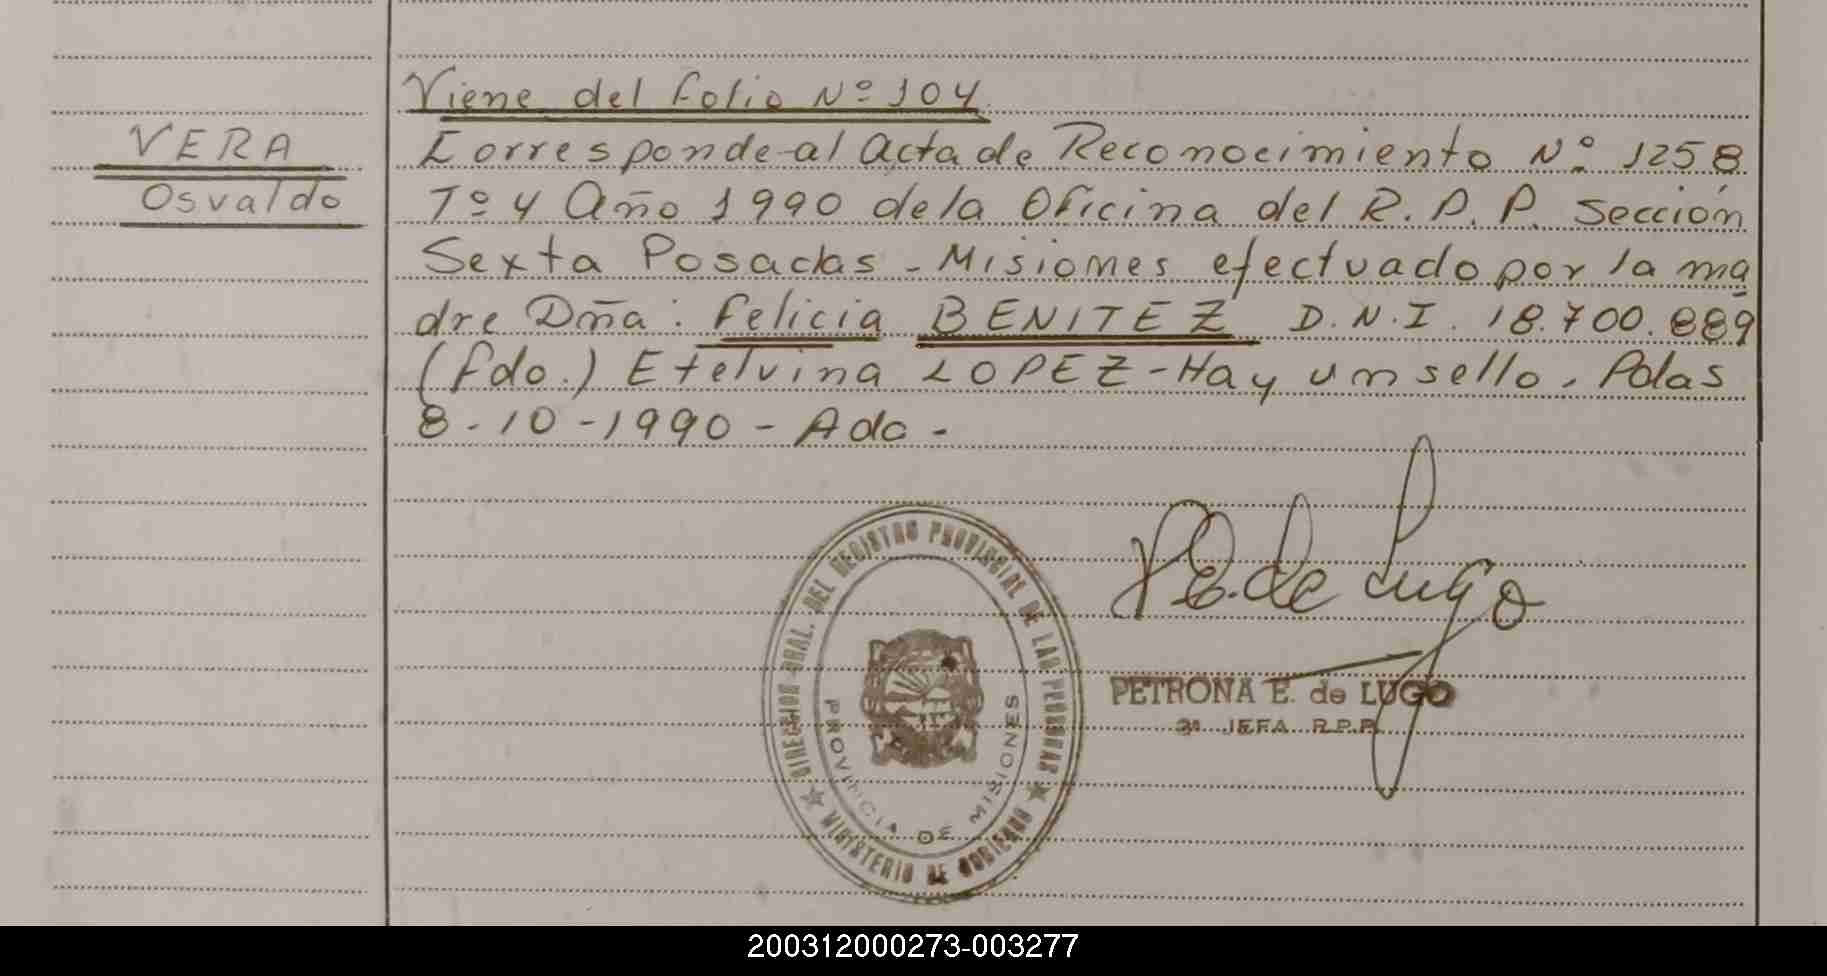 Viene del folio Nº 104
VERA
Osvaldo
Corresponde al Acta de Reconocimiento Nº 1258
Tº 4 Año 1990 de la Oficina del R.P.P. Sección
Sexta Posadas - Misiones efectuado por la ma
dre Dña: Felicia BENITEZ D.N.I. 18.700.889
(Fdo.) Etelvina LOPEZ - Hay un sello. Pdas
8-10-1990 - Ado -
P E. de Lugo
PETRONA E. de LUGO
3ª JEFA R.P.P.
DIRECCION GRAL. DEL REGISTRO PROVINCIAL DE LAS PERSONAS
MINISTERIO DE GOBIERNO
PROVINCIA DE MISIONES
200312000273-003277